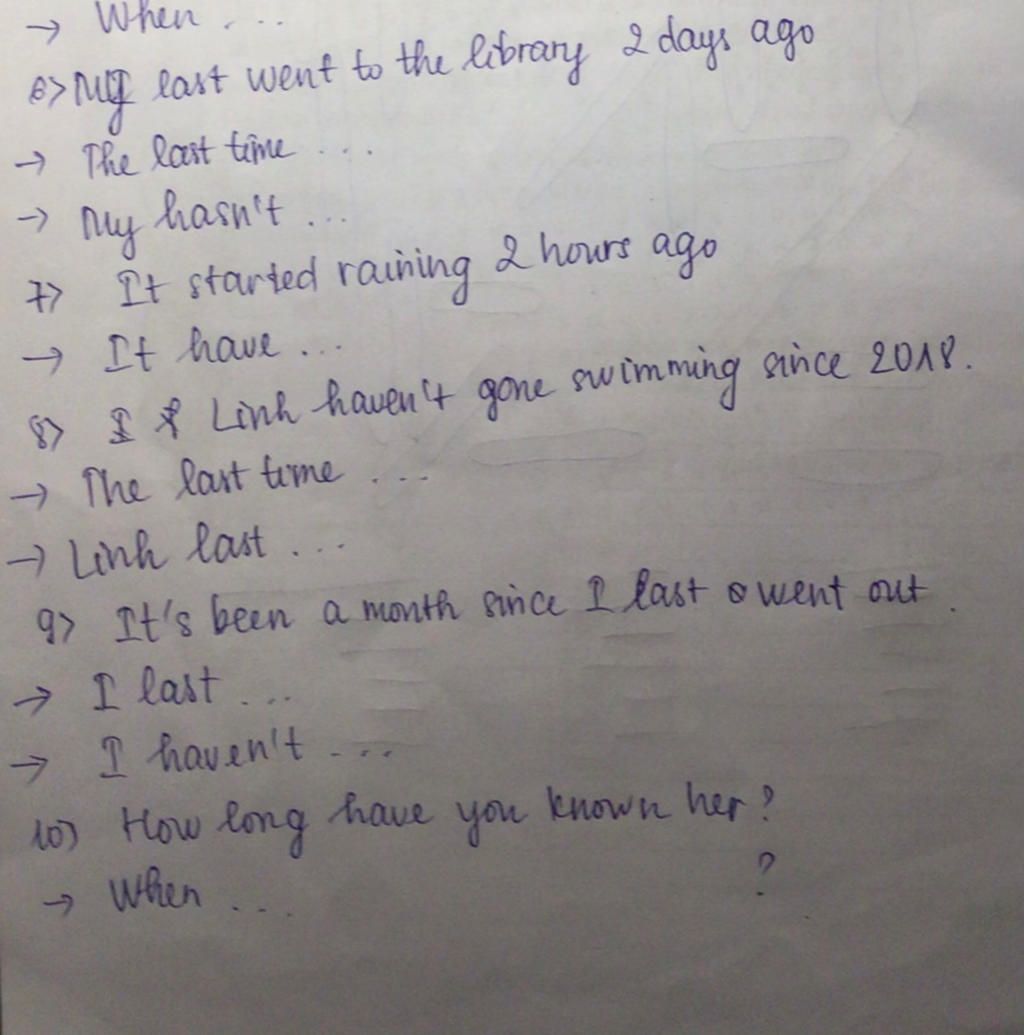 → When ...
6> My last went to the library 2 days ago
→ The last time ...
→ My hasn't ...
7> It started raining 2 hours ago
→ It have ...
8> Linh haven't gone swimming since 2018.
→ The last time ...
→ Linh last ...
9> It's been a month since I last went out.
→ I last ...
→ I haven't ...
10> How long have you known her?
→ When ... ?